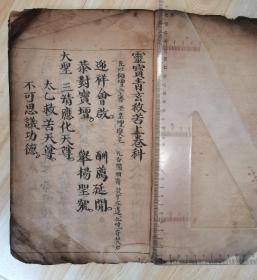 靈寶青玄救苦上卷科
迎祥會啟　酬薦延開
恭對寶壇　舉揚聖號
大聖　三清應化天尊
太乙救苦天尊
不可思議功德